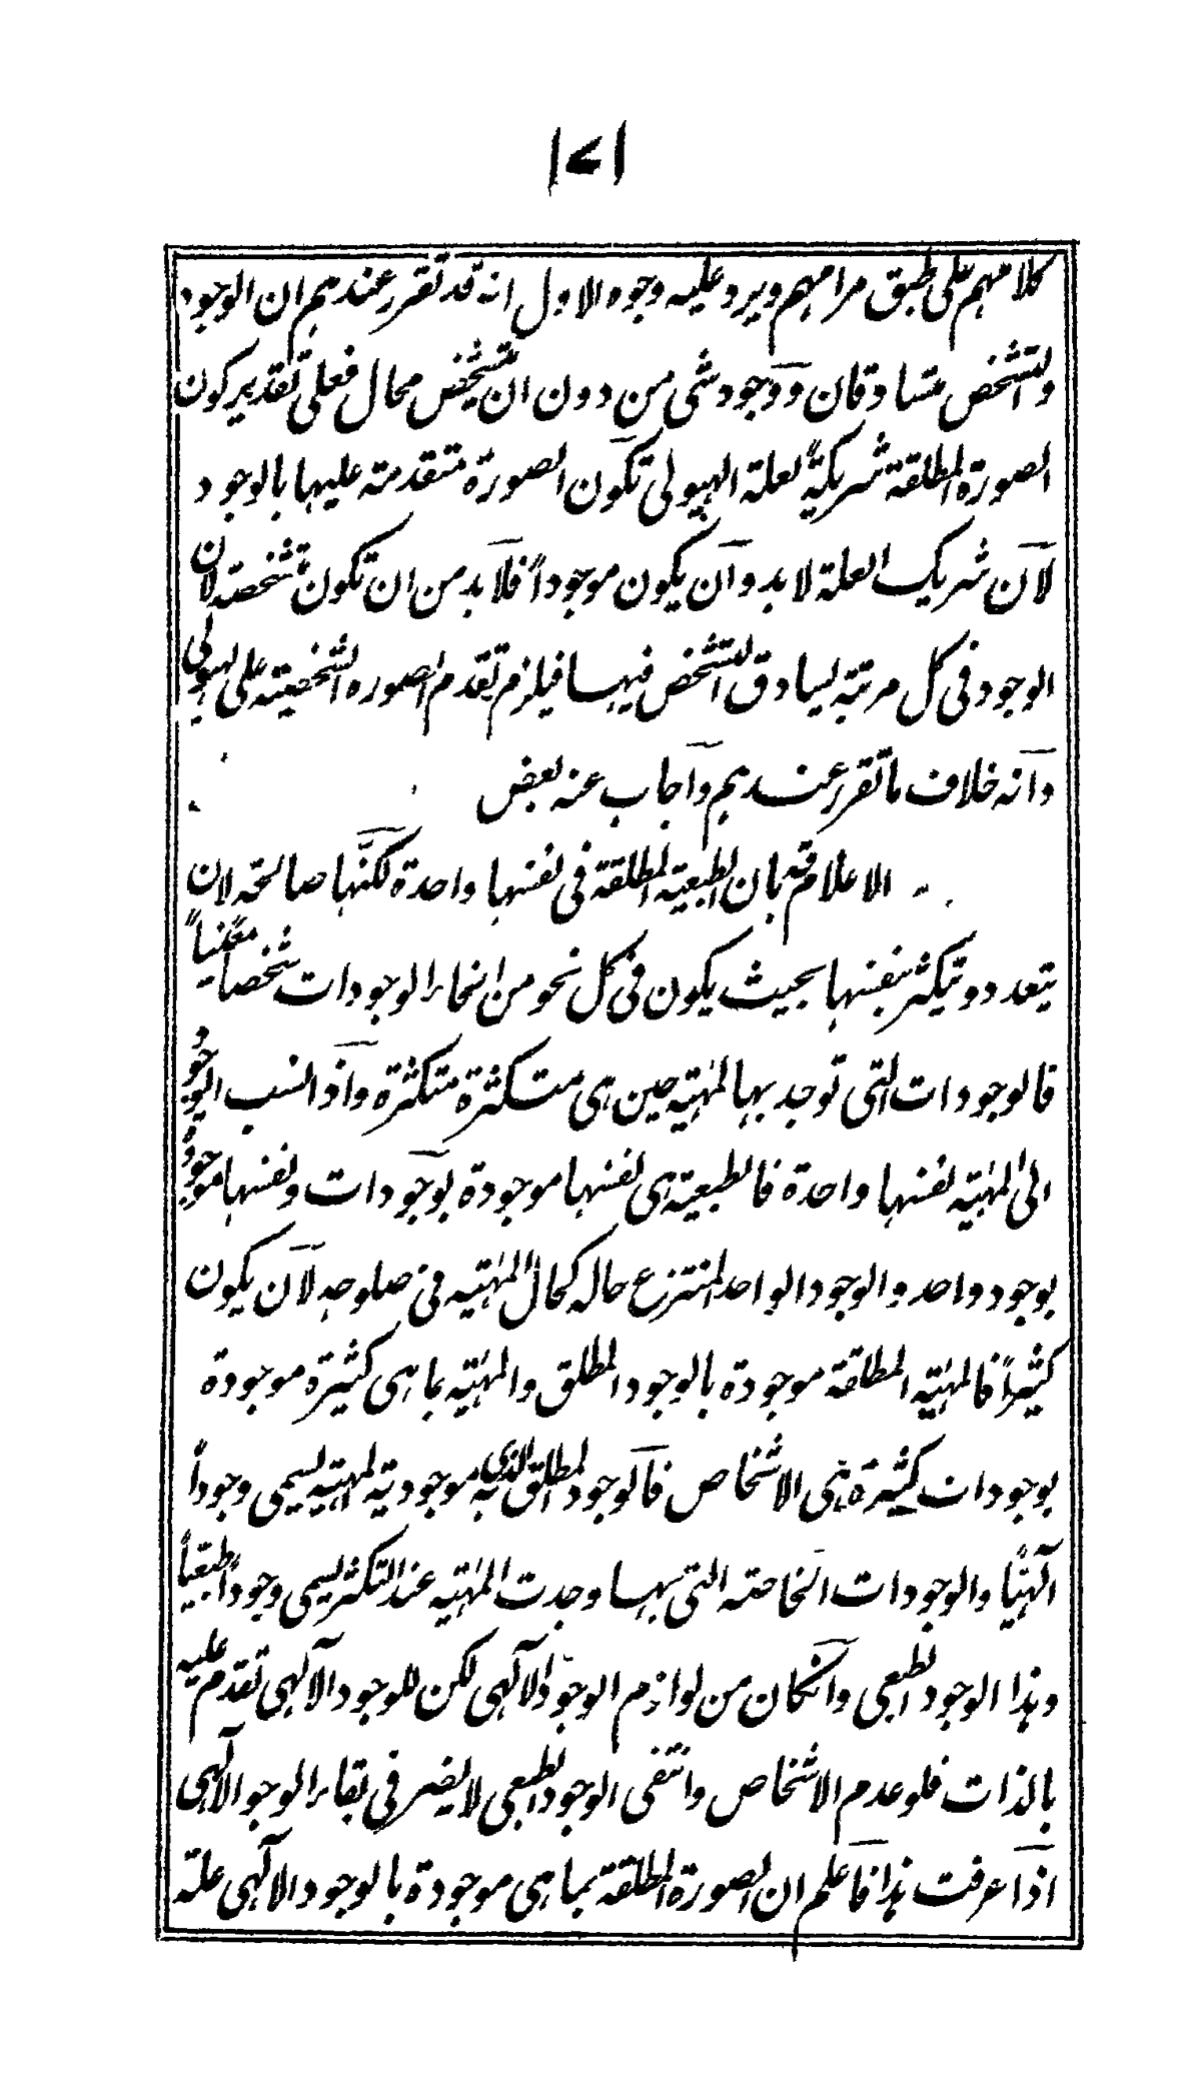 ١٧١
كلامهم على طبق مرامهم ويرد عليه وجوه الاول انه قد تقرر عندهم ان الوجود
والتشخص متساوقان ووجود شى من دون ان يتشخص محال فعلى تقدير كون
الصورة المطلقة شريكةً لعلة الهيولى تكون الصورة متقدمة عليها بالوجود
لان شريك العلة لا بد وان يكون موجوداً فلا بد من ان تكون متشخصة لان
الوجود فى كل مرتبة يساوق التشخص فيها فيلزم تقدم الصورة الشخصية على الهيولى
وانه خلاف ما تقرر عندهم واجاب عنه بعض
الاعلام قد بان الطبعية المطلقة فى نفسها واحدة لكنَّها صالحة لان
يتعدد ويتكثر بنفسها بحيث يكون فى كل نحو من انحاء الوجودات شخصاً معيناً
فالوجودات التى توجد بها المهية حين هى متكثرة متكثرة واذا نسب الوجود
الى المهية نفسها واحدة فالطبعية هى نفسها موجودة بوجودات ونفسها موجودة
بوجود واحد والوجود الواحد المنتزع حاله كحال المهية فى صلوحه لان يكون
كثيراً فالمهية المطلقة موجودة بالوجود المطلق والمهية بما هى كثيرة موجودة
بوجودات كثيرة هى الاشخاص فالوجود المطلق الذى به موجودية المهية يسمى وجوداً
آلهيًا والوجودات الخاصة التى بها وجدت المهية عند التكثر يسمى وجوداً طبعياً
وهذا الوجود الطبعى وان كان من لوازم الوجود الآلهى لكن للوجود الآلهى تقدم عليه
بالذات فلو عدم الاشخاص وانتفى الوجود الطبعى لا يضر فى بقاء الوجو الآلهى
اذا عرفت هذا فاعلم ان الصورة المطلقة بما هى موجودة بالوجود الآلهى علة